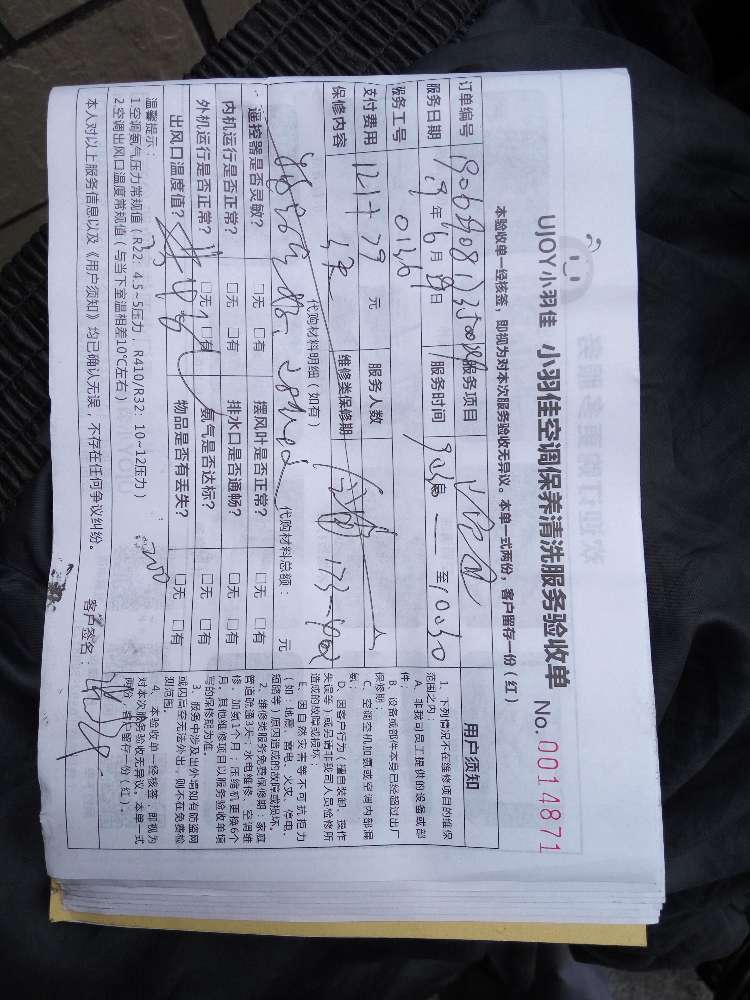 UJOY小羽佳 小羽佳空调保养清洗服务验收单 No.0014871
本验收单一经核签，即视为对本次服务验收无异议。本单一式两份，客户留存一份（红）
订单编号 服务项目
服务日期 年 6 月 日 服务时间 至 10:30
服务工号 01361
支付费用 元 服务人数
保修内容 维修类保修期
代购材料明细（如有）
代购材料总额： 元
遥控器是否灵敏？ □无 □有 摆风叶是否正常？ □无 □有
内机运行是否正常？ □无 □有 排水口是否通畅？ □无 □有
外机运行是否正常？ □无 □有 氨气是否达标？ □无 □有
出风口温度值？ 物品是否有丢失？ □无 □有
温馨提示：
1空调氨气压力常规值（R22：4.5~5压力，R410/R32：10~12压力）
2.空调出风口温度常规值（与当下室温相差10℃左右）
本人对以上服务信息以及《用户须知》均已确认无误，不存在任何争议纠纷。 客户签名：
用户须知
1、下列情况不在维修项目的维保
范围之内：
A、非我司员工提供的设备或部
件；
B、设备或部件本身已经超过出厂
保修期；
C、空调整机加氨或空调内部漏
氨；
D、因客户行为（擅自装卸、操作
失误等）或另请非我司人员检修所
造成的故障或损坏；
E、因自然灾害等不可抗拒力
（如：地震、雷电、火灾、停电、
短路等）原因造成的故障或损坏。
2、维修类服务免费保修期：家庭
管道疏通3天；水电维修、空调维
修、加氨1个月；压缩机更换6个
月；其他维修项目以服务验收单填
写的保修期为准。
3、服务中涉及出外墙如有防盗网
或因高空无法外出，则不在免费检
测范围；
4、本验收单一经核签，即视为
对本次服务验收无异议。本单一式
两份，客户留存一份（红）。